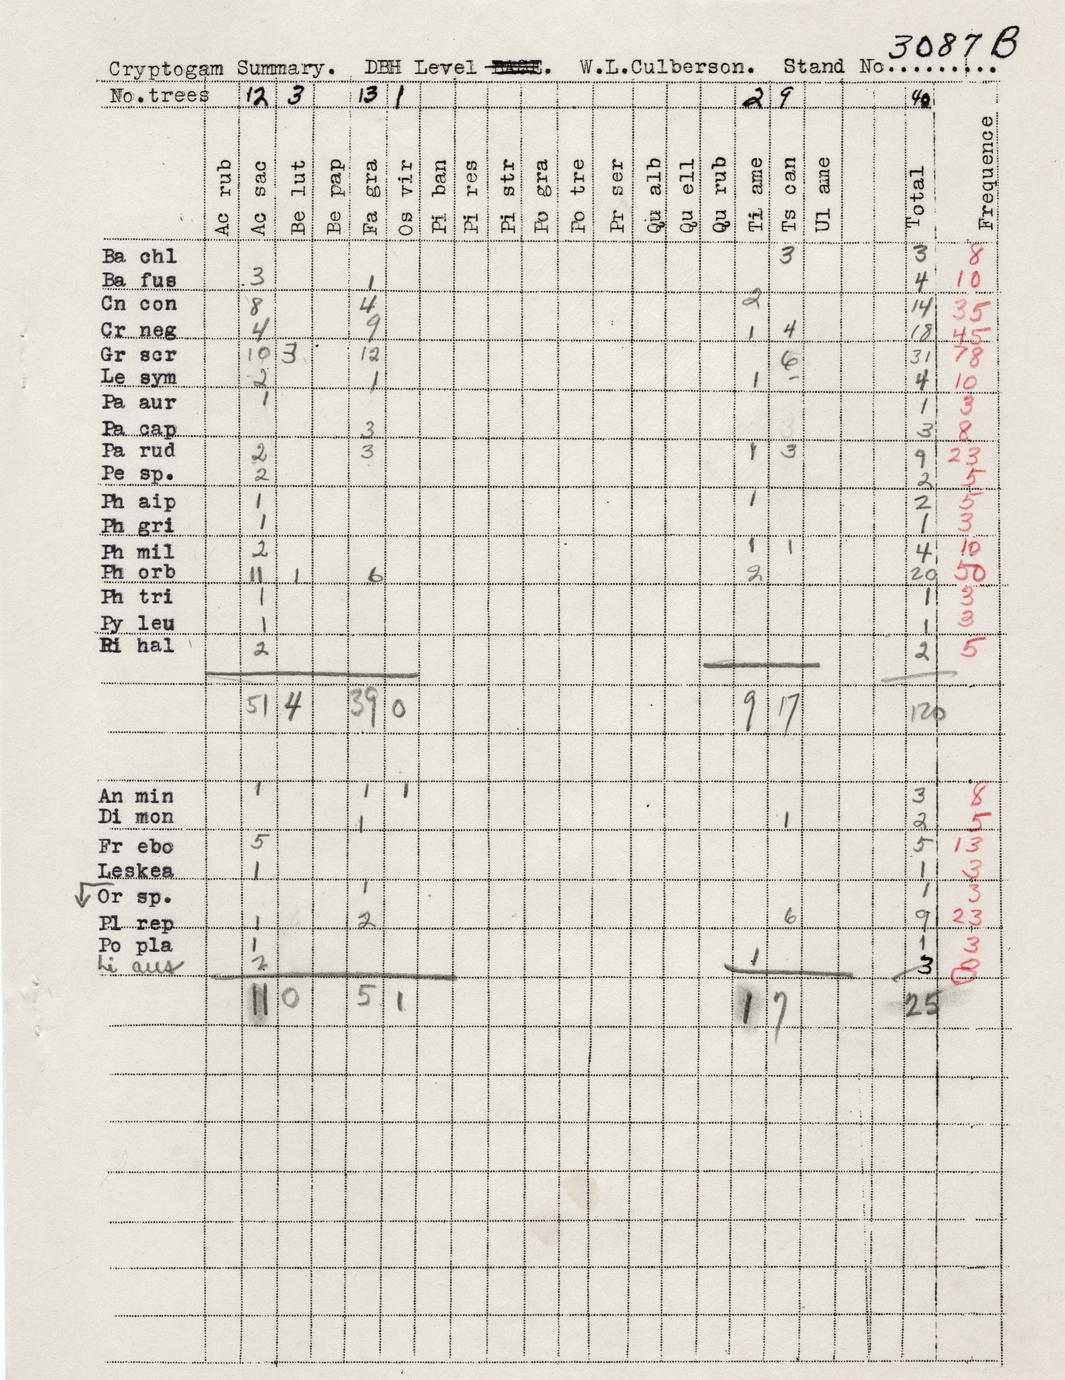 3087 B
Cryptogam Summary. DBH Level BASE. W.L.Culberson. Stand No.........
No.trees 12 3 13 1 2 9 40
Ac rub Ac sac Be lut Be pap Fa gra Os vir Pi ban Pi res Pi str Po gra Po tre Pr ser Qu alb Qu ell Qu rub Ti ame Ts can Ul ame Total Frequence
Ba chl 3 3 8
Ba fus 3 1 4 10
Cn con 8 4 2 14 35
Cr neg 4 9 1 4 18 45
Gr scr 10 3 12 6 31 78
Le sym 2 1 1 - 4 10
Pa aur 1 1 3
Pa cap 3 3 8
Pa rud 2 3 1 3 9 23
Pe sp. 2 2 5
Ph aip 1 1 2 5
Ph gri 1 1 3
Ph mil 2 1 1 4 10
Ph orb 11 1 6 2 20 50
Ph tri 1 1 3
Py leu 1 1 3
Ri hal 2 2 5
51 4 39 0 9 17 120
An min 1 1 1 3 8
Di mon 1 1 2 5
Fr ebo 5 5 13
Leskea 1 1 3
Or sp. 1 1 3
Pl rep 1 2 6 9 23
Po pla 1 1 3
Li aus 2 1 3
11 0 5 1 1 7 25